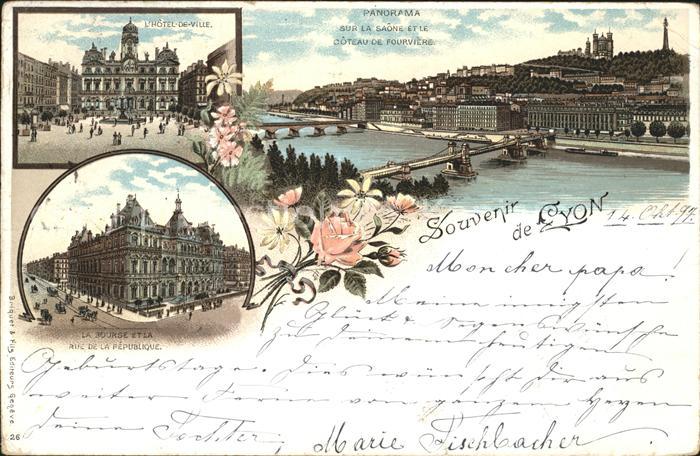 L'HÔTEL-DE-VILLE.
PANORAMA
SUR LA SAÔNE ET LE
CÔTEAU DE FOURVIÈRE.
Souvenir
de LYON
14. Okt. 97.
LA BOURSE ET LA
RUE DE LA RÉPUBLIQUE.
Briquet & Fils, Editeurs, Genève
26
Mon cher papa!
Meine innigsten
Glück & Segenswünsche
zu Deinem heutigen
Geburtstage. Dies wünscht Dir aus
weiter Ferne von ganzem Herzen
Deine Tochter,
Marie Fischbacher.